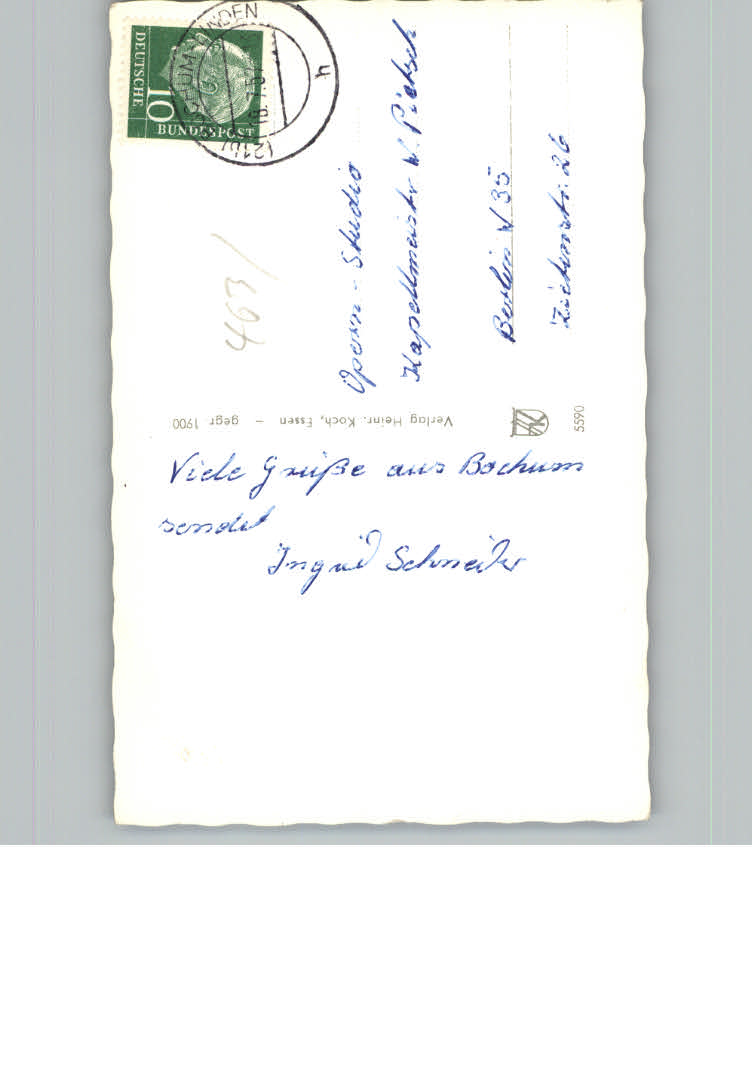 DEUTSCHE
BUNDESPOST
10
(21b)
h
463/
Opern-Studio
Kapellmeister W. Pietsch
Berlin W 35
Verlag Heinr. Koch, Essen – gegr 1900
5590
Viele Grüße aus Bochum
sendet
Ingrid Schneider